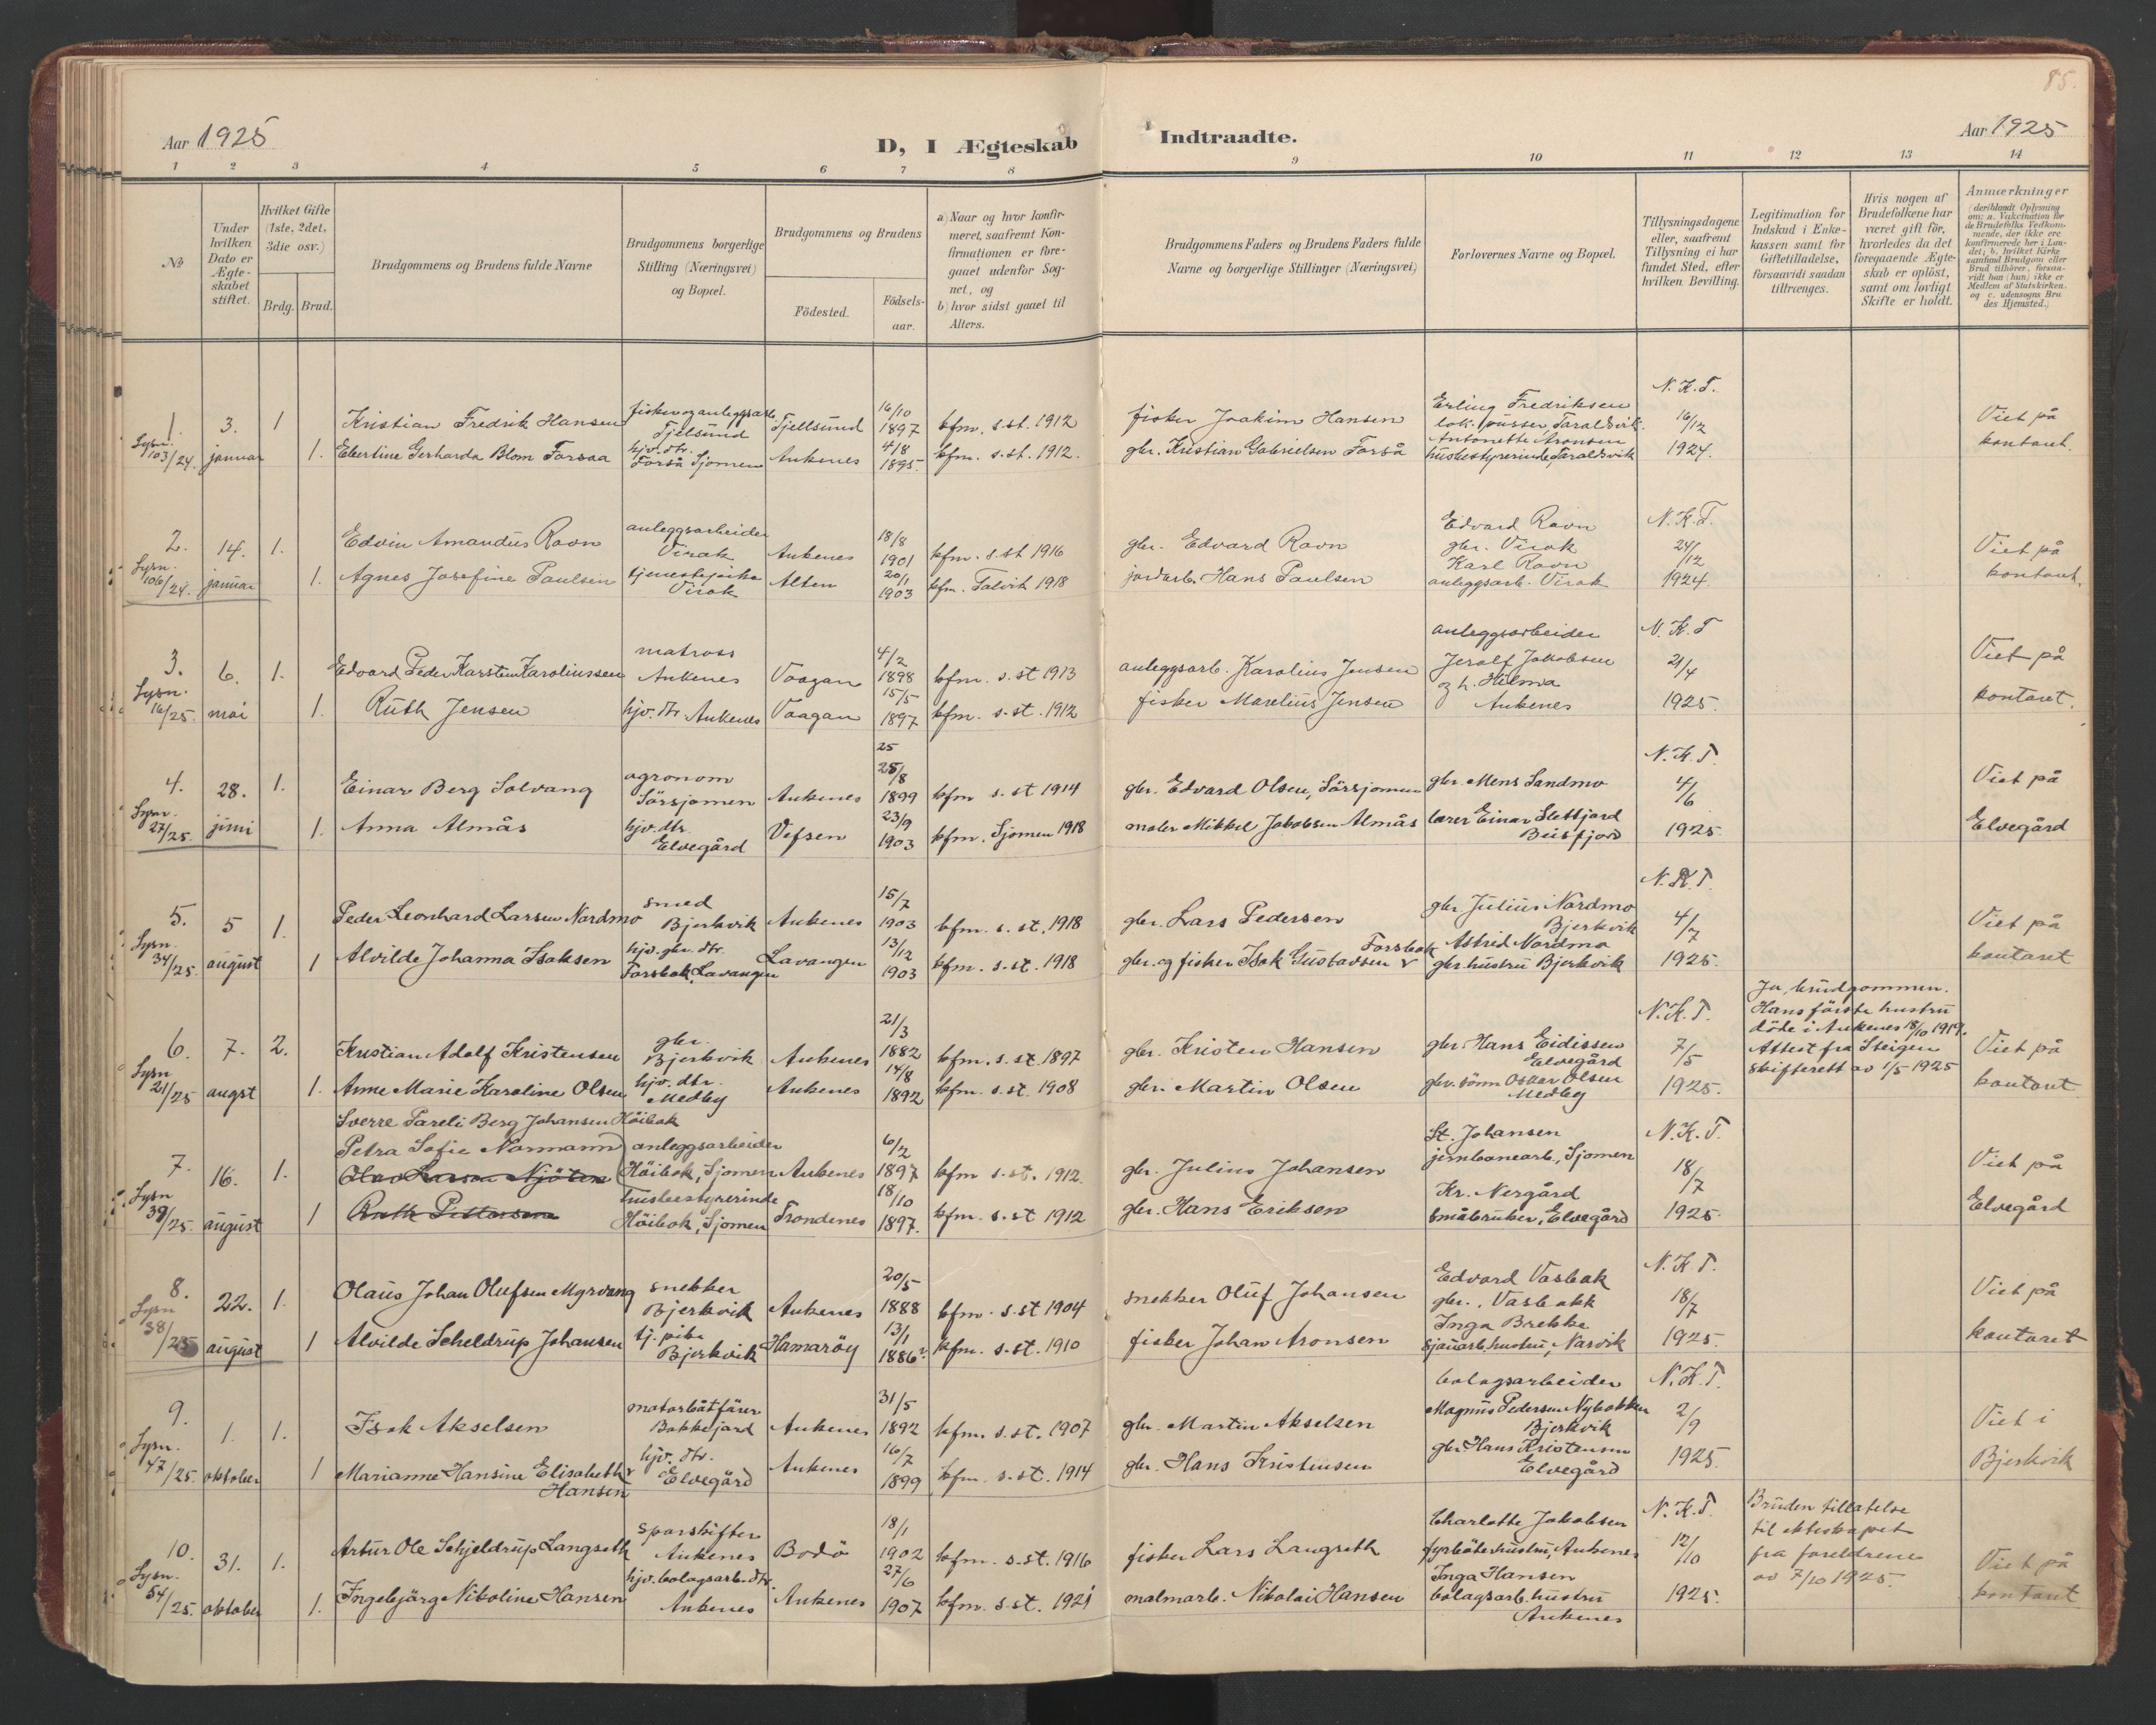 85.
Aar 1925
D, I Ægteskab Indtraadte.
Aar 1925
1 2 3 4 5 6 7 8 9 10 11 12 13 14
No
Under hvilken Dato er Ægteskabet stiftet.
Hvilket Gifte (1ste, 2det, 3die osv.)
Brdg. Brud.
Brudgommens og Brudens fulde Navne
Brudgommens borgerlige Stilling (Næringsvei) og Bopæl.
Brudgommens og Brudens
Födested.
Födsels-aar.
a) Naar og hvor konfirmeret, saafremt Konfirmationen er foregaaet udenfor Sognet, og
b) hvor sidst gaaet til Alters.
Brudgommens Faders og Brudens Faders fulde Navne og borgerlige Stillinger (Næringsvei)
Forlovernes Navne og Bopæl.
Tillysningsdagene eller, saafremt Tillysning ei har fundet Sted, efter hvilken Bevilling.
Legitimation for Indskud i Enkekassen samt for Giftetilladelse, forsaavidt saadan tiltrænges.
Hvis nogen af Brudefolkene har været gift för, hvorledes da det foregaaende Ægteskab er oplöst, samt om lovligt Skifte er holdt.
Anmærkninger (deriblandt Oplysning om: a. Vakcination for de Brudefolks Vedkommende, der ikke ere konfirmerede her i Landet; b. hvilket Kirkesamfund Brudgom eller Brud tilhörer, forsaavidt han (hun) ikke er Medlem af Statskirken. og c. udensogns Brudes Hjemsted.)
1. Lysn. 103/24. 3. januar 1
Kristian Fredrik Hansen fisker og anleggsarb. Tjelsund Tjellsund 16/10 1897 kfm. s.st. 1912 fisker Joakim Hansen
1. Ebertine Gerharda Blom Forsaa hjv. dtr. Forså Sjomen Ankenes 4/8 1895. kfm. s.st. 1912. gbr. Kristian Gabrielsen Forså
Erling Fredriksen lok. pusser Taraldsvik. Antonette Aronsen husbestyrerinde, Taraldsvik
N. K. T. 16/12 1924.
Viet på kontoret.
2. Lysn. 106/24. 14. januar 1.
Edvin Amandus Ravn anleggsarbeider Virak Ankenes 18/8 1901 kfm. s.st 1916 gbr. Edvard Ravn
1. Agnes Josefine Paulsen tjenestepike Virak Alten 20/1 1903 kfm. Talvik 1918 jordarb. Hans Paulsen
Edvard Ravn gbr. Virak Karl Ravn anleggsarb. Virak
N. K. T. 24/12 1924.
Viet på kontoret.
3. Lysn. 16/25. 6. mai 1.
Edvard Peder Karsten Karoliussen matross Ankenes Vaagan 4/2 1898 kfm. s.st 1913 anleggsarb. Karolius Jensen
1. Ruth Jensen hjv. dtr. Ankenes Vaagan 15/5 1897 kfm. s.st. 1912 fisker Marelius Jensen
anleggsarbeider Jerolf Jakobsen g h. Hilma Ankenes
N. K. T 21/4 1925.
Viet på kontoret.
4. Lysn. 27/25. 28. juni 1.
Einar Berg Solvang agronom Sörsjomen Ankenes 25 25/8 1899 kfm s.st 1914 gbr. Edvard Olsen, Sörsjomen
1. Anna Almås hjv. dtr. Elvegård Vefsen 23/9 1903 kfm. Sjomen 1918 maler Mikkel Jakobsen Almås
gbr Mens Sandmo lærer Einar Slettjord Beisfjord
N. K. T. 4/6 1925.
Viet på Elvegård
5. Lysn. 34/25. 5 august 1.
Peder Leonhard Larsen Nordmo smed Bjerkvik Ankenes 15/7 1903 kfm. s. st. 1918 gbr. Lars Pedersen
1 Alvilde Johanna Isaksen hjv. gbr. dtr. Forsbak, Lavangen Lavangen 13/12 1903 kfm. s.st. 1918 gbr. og fisker Isak Gustavsen Forsbak
gbr Julius Nordmo Bjerkvik Astrid Nordmo gbr. hustru Bjerkvik
N. K. T. 4/7 1925.
Viet på kontoret
6. Lysn 21/25 7. augst 2.
Kristian Adolf Kristensen gbr. Bjerkvik Ankenes 21/3 1882 kfm. s. st. 1897 gbr. Kristen Hansen
1. Anne Marie Karoline Olsen hjv. dtr. Medby Ankenes 14/8 1892 kfm. s.st. 1908 gbr. Martin Olsen
gbr. Hans Eidissen Elvegård gbr. sönn Oskar Olsen Medby
N. K. T. 7/5 1925.
Ja, brudgommen. Hans förste hustru döde i Ankenes 18/10 1919. Attest fra Steigen skifterett av 1/5 1925
Viet på kontoret
7. Lysn 39/25. 16. august 1.
Sverre Pareli Berg Johansen Höibok
Petra Sofie Normann anleggsarbeider Höibok, Sjomen Ankenes 6/2 1897 kfm s.st. 1912. gbr. Julius Johansen
1 husbestyrerinde Höibok, Sjomen Trondenes 18/10 1897. kfm. s.st 1912 gbr. Hans Eriksen
St. Johansen jernbanearb., Sjomen Kr. Nergård småbruker, Elvegård
N. K. T. 18/7 1925.
Viet på Elvegård
8. Lysn 38/25 22. august 1.
Olaus Johan Olufsen Myrvang snekker Bjerkvik Ankenes 20/5 1888 kfm. s.st 1904 snekker Oluf Johansen
1 Alvilde Scheldrup Johansen tj. pike Bjerkvik Hamaröy 13/1 1886 kfm. s.st. 1910 fisker Johan Aronsen
Edvard Vasbak gbr., Vasbakk Inga Brekke sjauarb. hustru, Narvik
N. K. T. 18/7 1925.
Viet på kontoret
9. Lysn. 47/25. 1. oktober 1.
Isak Akselsen motorbåtförer Bakkejord Ankenes 31/5 1892 kfm. s.st. 1907 gbr. Martin Akselsen
1 Marianne Hansine Elisabeth Hansen hjv. dtr. Elvegård Ankenes 16/7 1899 kfm. s.st. 1914 gbr. Hans Kristensen
bolagsarbeider Magnus Pedersen Nybakken Bjerkvik gbr Hans Kristensen Elvegård
N. K. T. 2/9 1925.
Viet i Bjerkvik
10. Lysn. 54/25. 31. oktober 1.
Artur Ole Schjeldrup Langseth sporskifter Ankenes Bodö 18/1 1902 kfm. s.st. 1916 fisker Lars Langseth
1. Ingebjörg Nikoline Hansen hjv. bolagsarb. dtr. Ankenes Ankenes 27/6 1907 kfm. s.st. 1921 malmarb. Nikolai Hansen
Charlotte Jakobsen fyrböterhustru, Ankenes Inga Hansen bolagsarb. hustru Ankenes
N. K. T 12/10 1925.
Bruden tillatelse til ekteskapet fra foreldrene av 7/10 1925.
Viet på kontoret